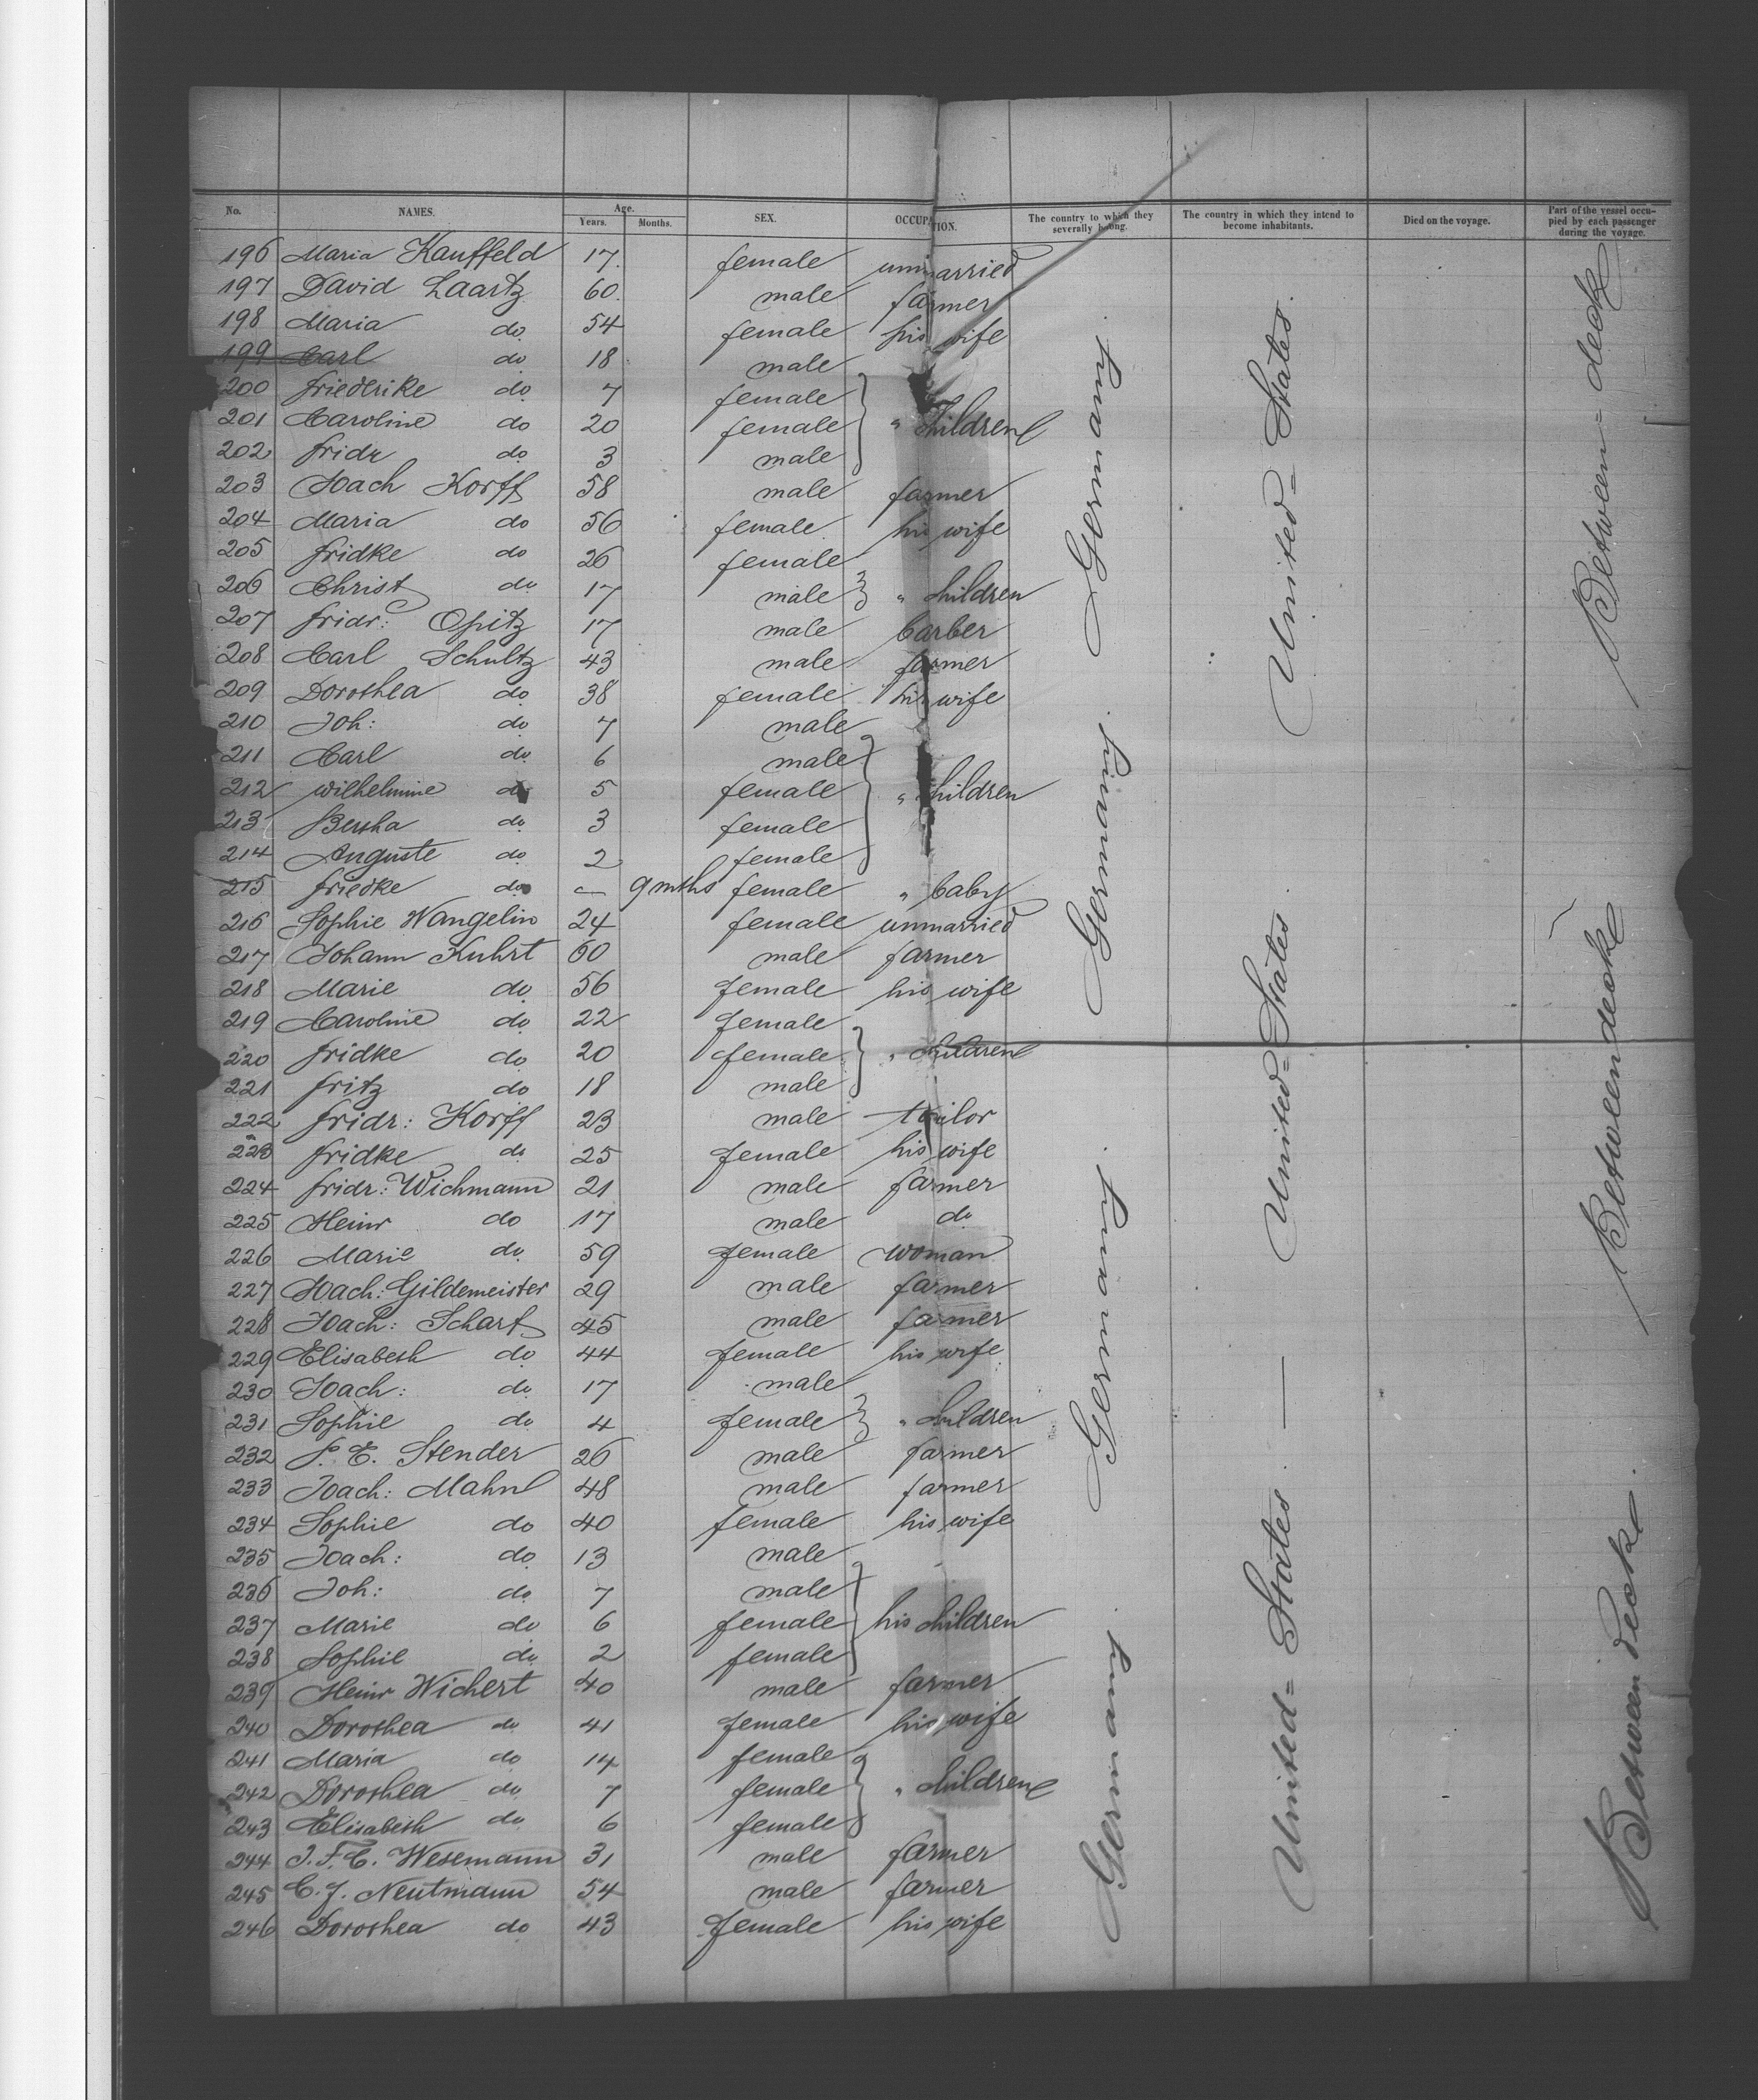 No. NAMES. Age. Years. Months. SEX. OCCUPATION. The country to which they severally belong. The country in which they intend to become inhabitants. Died on the voyage. Part of the vessel occupied by each passenger during the voyage.
196 Maria Kauffeld 17. female unmarried
197 David Laartz 60. male farmer
198 Maria do 54 female his wife
199 Carl do 18 male
200 Friedrike do 7 female
201 Caroline do 20 female " children
202 Fridr do 3 male
203 Joach Korff 58 male farmer
204 Maria do 56 female his wife
205 Fridke do 26 female
206 Christ do 17 male " children
207 Fridr: Opitz 17 male barber
208 Carl Schultz 43 male farmer
209 Dorothea do 38 female his wife
210 Joh: do 7 male
211 Carl do 6 male
212 Wilhelmine do 5 female " children
213 Bertha do 3 female
214 Auguste do 2 female
215 Friedke do — 9 mths female " baby
216 Sophie Wangelin 24 female unmarried
217 Johann Kuhrt 60 male farmer
218 Marie do 56 female his wife
219 Caroline do 22 female
220 Fridke do 20 female " children
221 Fritz do 18 male
222 Fridr: Korff 23 male tailor
223 Fridke do 25 female his wife
224 Fridr: Wichmann 21 male farmer
225 Heinr do 17 male do
226 Marie do 59 female woman
227 Joach: Gildemeister 29 male farmer
228 Joach: Scharf 45 male farmer
229 Elisabeth do 44 female his wife
230 Joach: do 17 male
231 Sophie do 4 female " children
232 S. E. Stender 26 male farmer
233 Joach: Mahn 48 male farmer
234 Sophie do 40 female his wife
235 Joach: do 13 male
236 Joh: do 7 male
237 Marie do 6 female his children
238 Sophie do 2 female
239 Heinr Wichert 40 male farmer
240 Dorothea do 41 female his wife
241 Maria do 14 female
242 Dorothea do 7 female " children
243 Elisabeth do 6 female
244 J. F. C. Wesemann 31 male farmer
245 C. J. Neutmann 54 male farmer
246 Dorothea do 43 female his wife
Germany. Germany. Germany. Germany.
United=States. United=States. — United=States.
Between=deck Betweendecke Between decke.